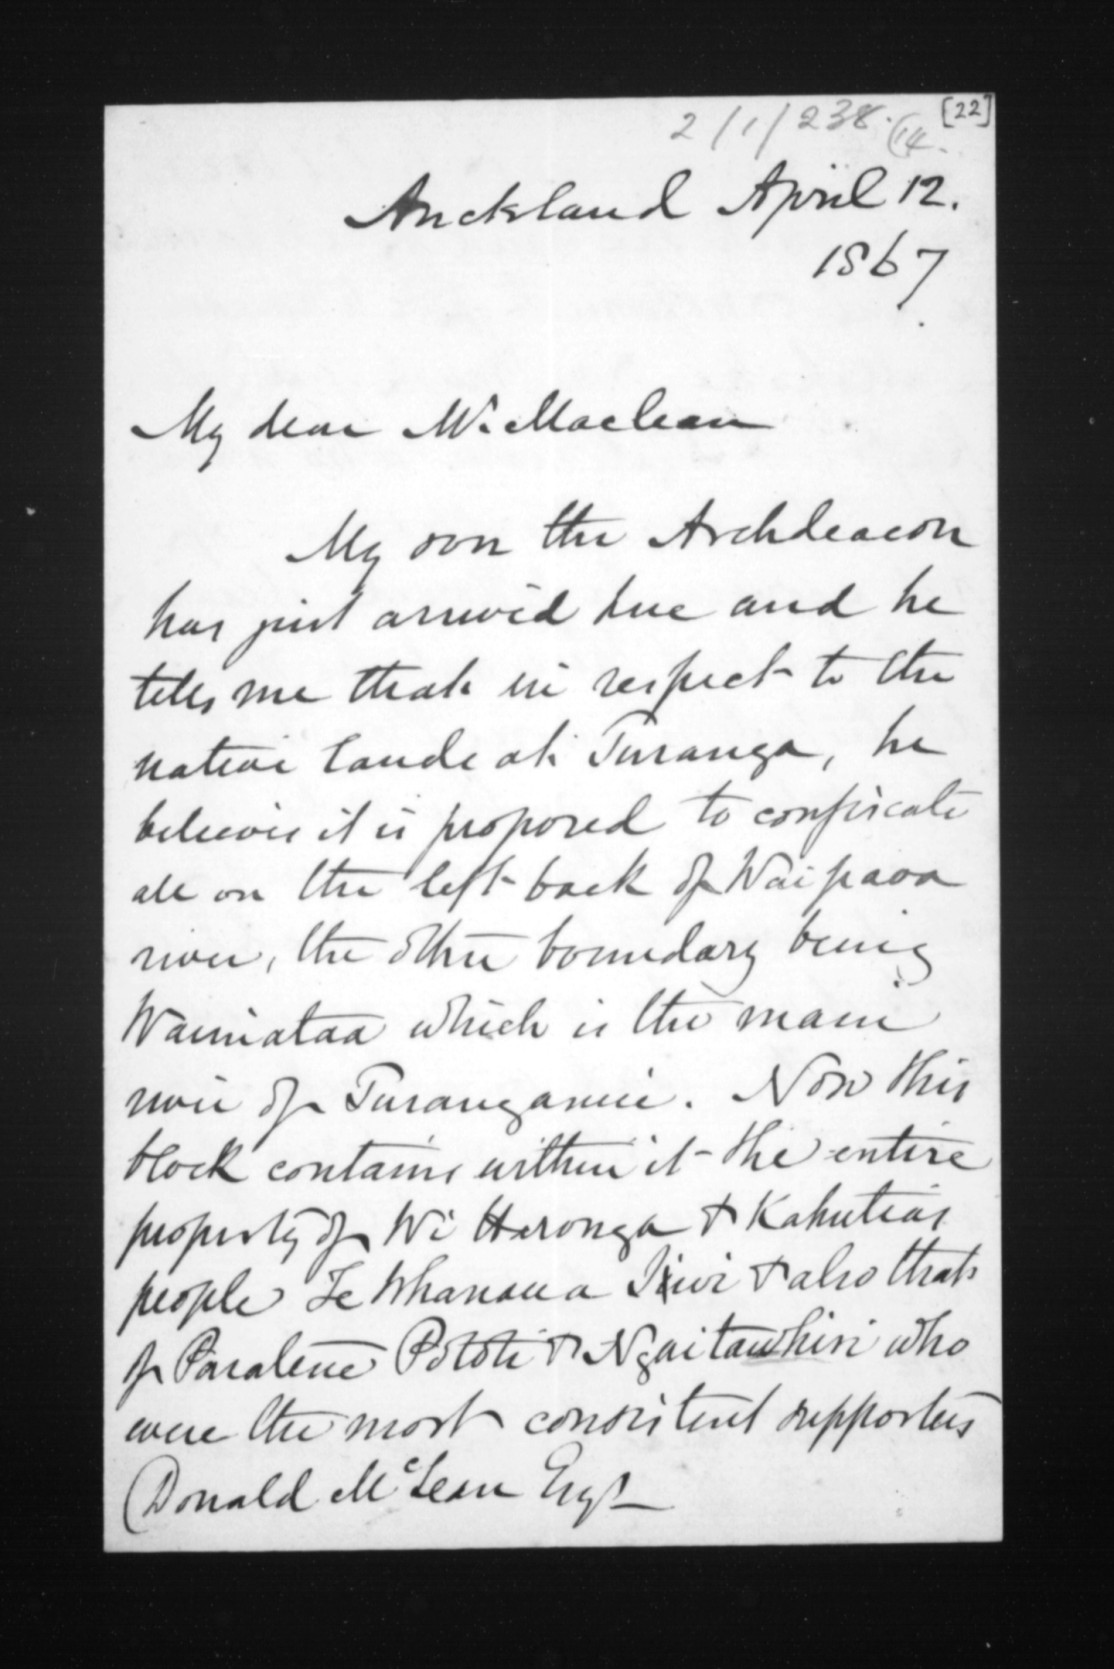 [22]
2/1/238. (14.
Auckland April 12.
1867
My dear Mr. Maclean
My son the Archdeacon
has just arrived here and he
tells me that in respect to the
native lands at Turanga, he
believes it is proposed to confiscate
all on the left bank of Waipaoa
river, the other boundary being
Waimataa which is the main
river of Turanganui. Now this
block contains within it the entire
property of Wi Haronga & Kahutias
people Te Whanau a Iwi & also that
of Paratene Pototi & Ngaitawhiri who
were the most consistent supporters
Donald McLean Esqr